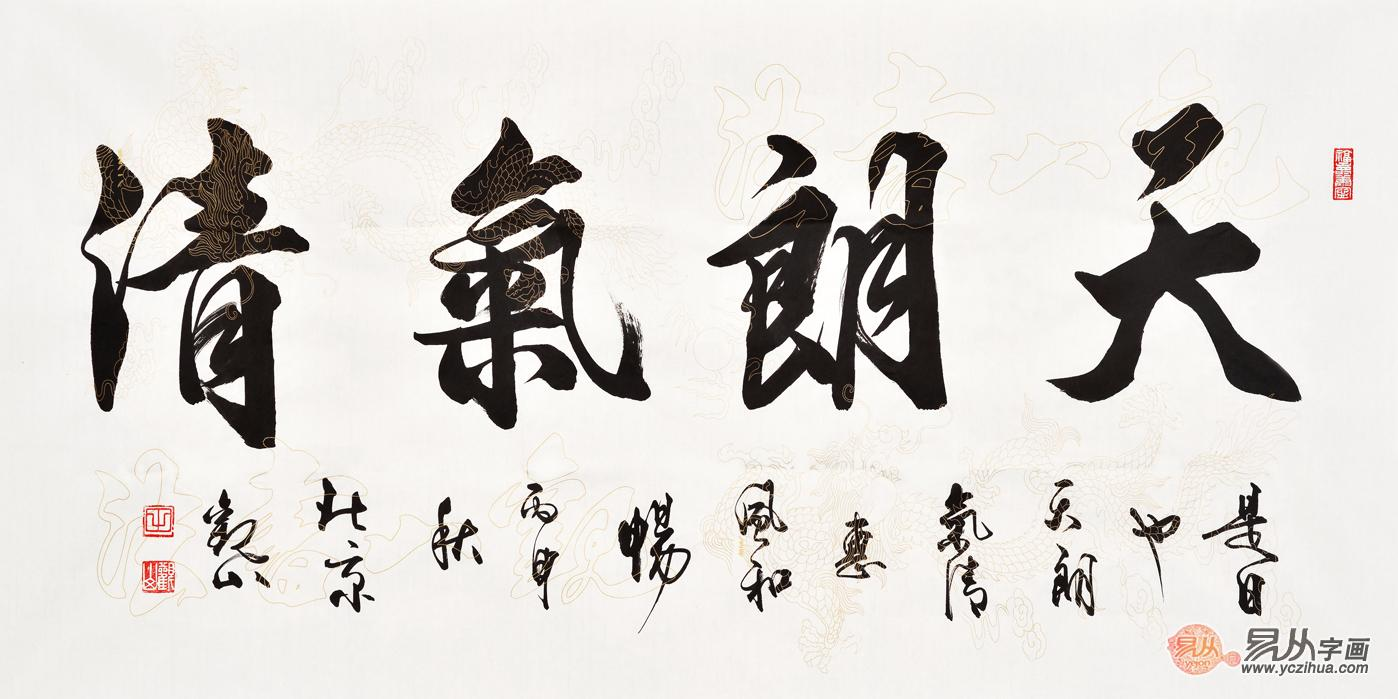 天朗氣清
是日也天朗氣清惠風和暢丙申秋北京觀山
觀山
易从字画
www.yczihua.com